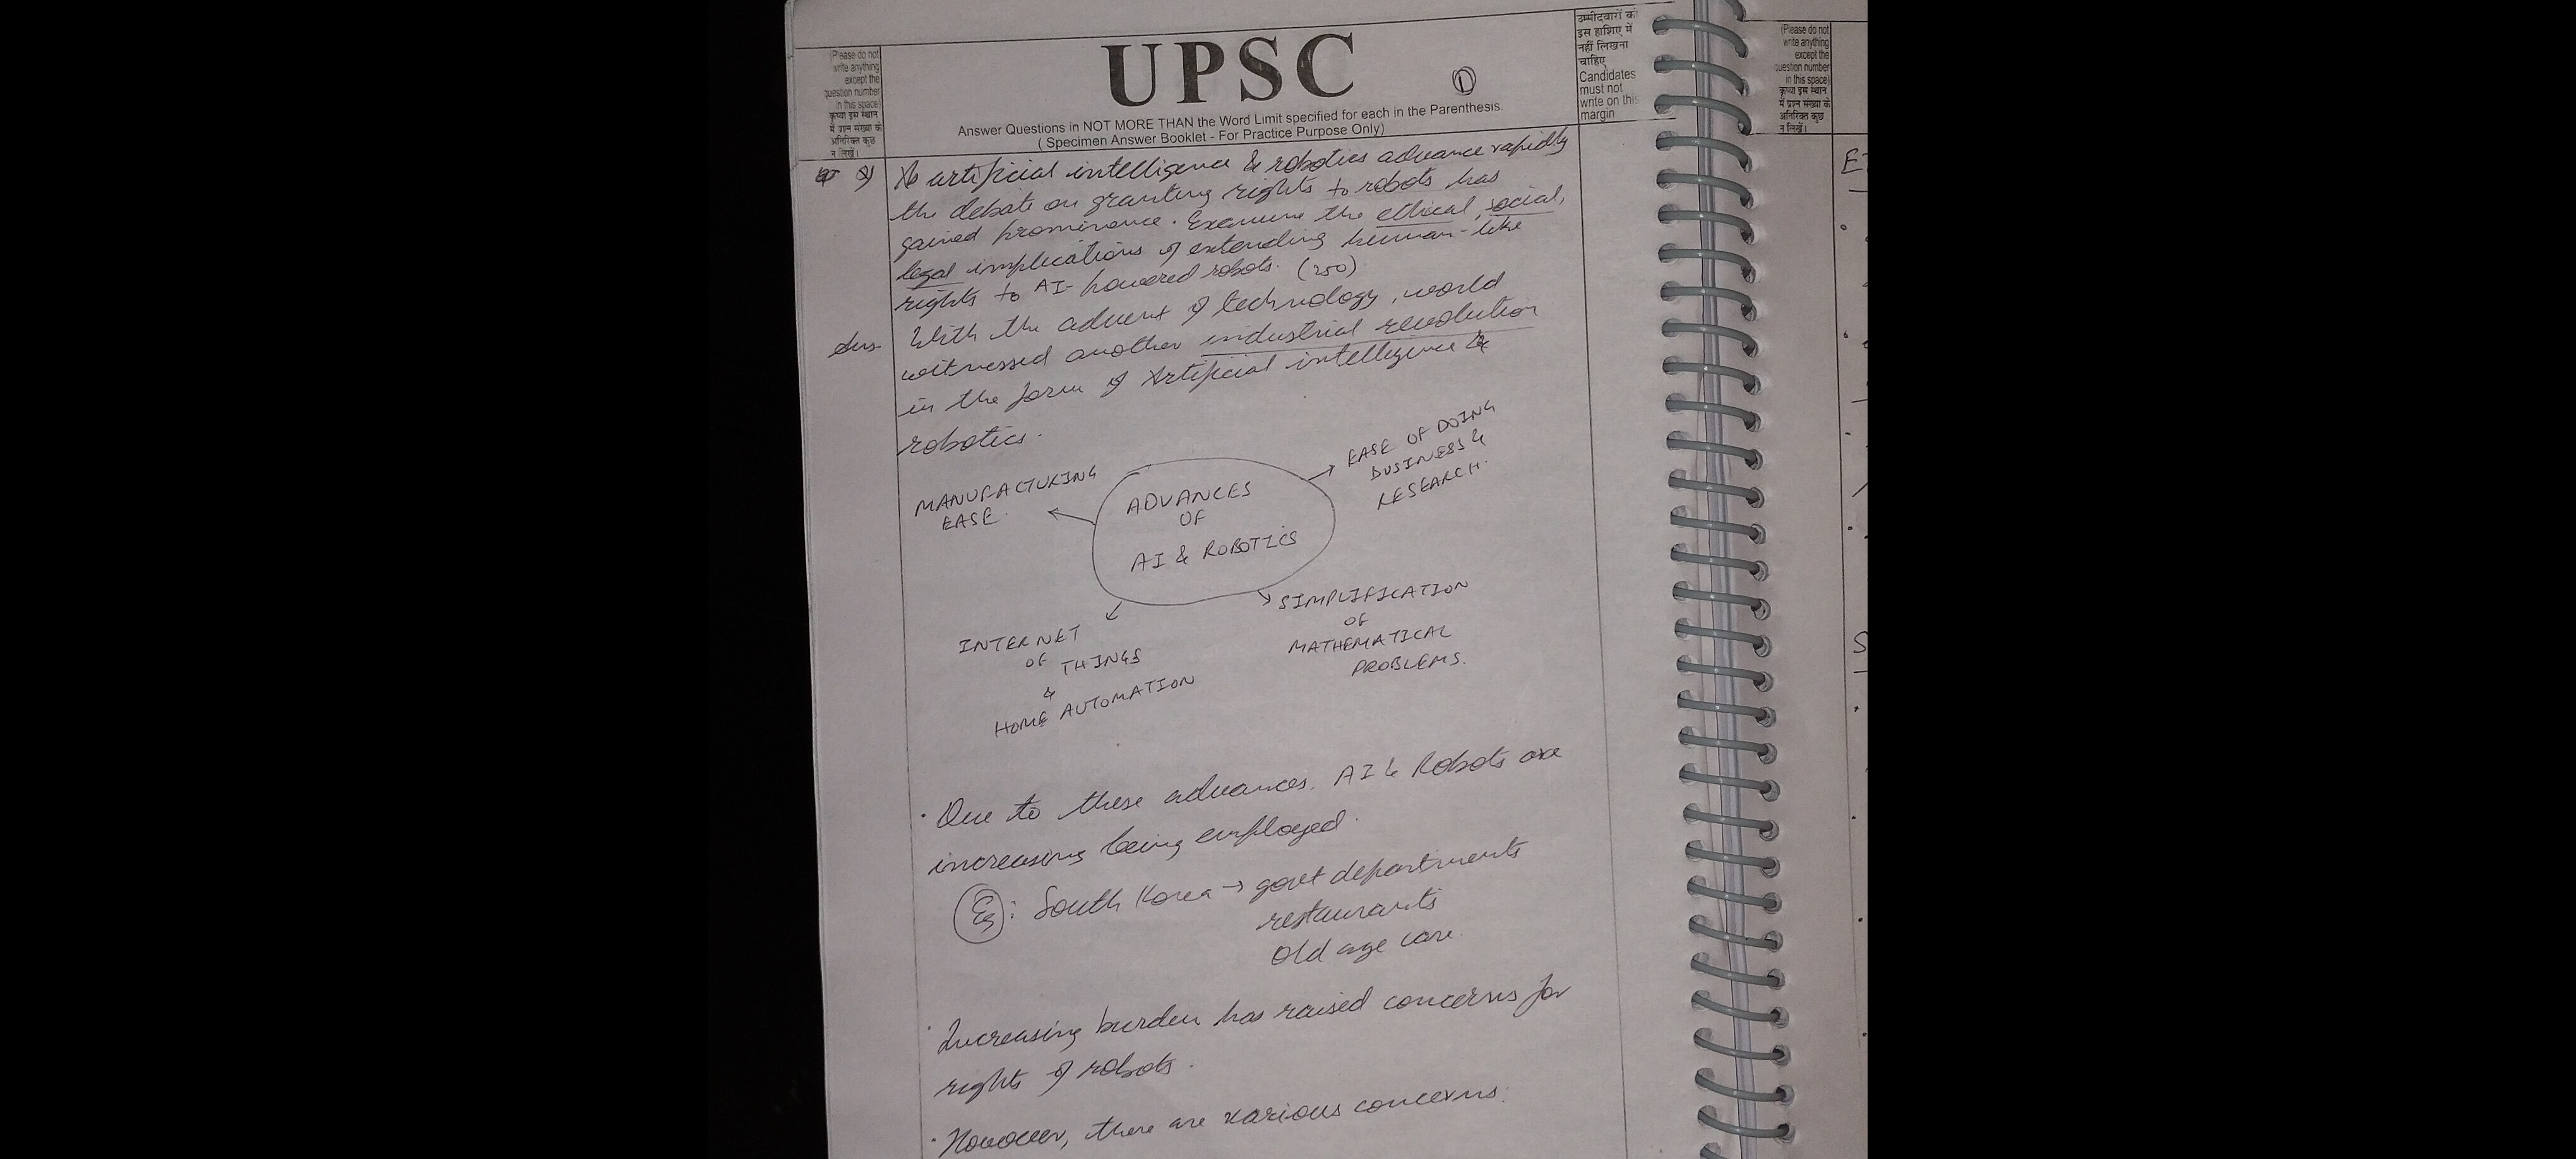 (Please do not
write anything
except the
question number
in this space)
कृपया इस स्थान
में प्रश्न संख्या के
अतिरिक्त कुछ
न लिखें।
UPSC
1
Answer Questions in NOT MORE THAN the Word Limit specified for each in the Parenthesis.
( Specimen Answer Booklet - For Practice Purpose Only)
उम्मीदवारों को
इस हाशिए में
नहीं लिखना
चाहिए
Candidates
must not
write on this
margin
Q) As artificial intelligence & robotics advance rapidly
the debate on granting rights to robots has
gained prominence. Examine the ethical, social,
legal implications of extending human-like
rights to AI-powered robots. (250)
Ans. With the advent of technology, world
witnessed another industrial revolution
in the form of Artificial intelligence &
robotics.
MANUFACTURING
EASE.
ADVANCES
OF
AI & ROBOTICS
EASE OF DOING
BUSINESS &
RESEARCH.
INTERNET
OF THINGS
&
HOME AUTOMATION
SIMPLIFICATION
OF
MATHEMATICAL
PROBLEMS.
· Due to these advances, AI & Robots are
increasing being employed.
Eg: South Korea → govt departments
restaurants
Old age care.
· Increasing burden has raised concerns for
rights of robots.
· However, there are various concerns:
(Please do not
write anything
except the
question number
in this space)
कृपया इस स्थान
में प्रश्न संख्या के
अतिरिक्त कुछ
न लिखें।